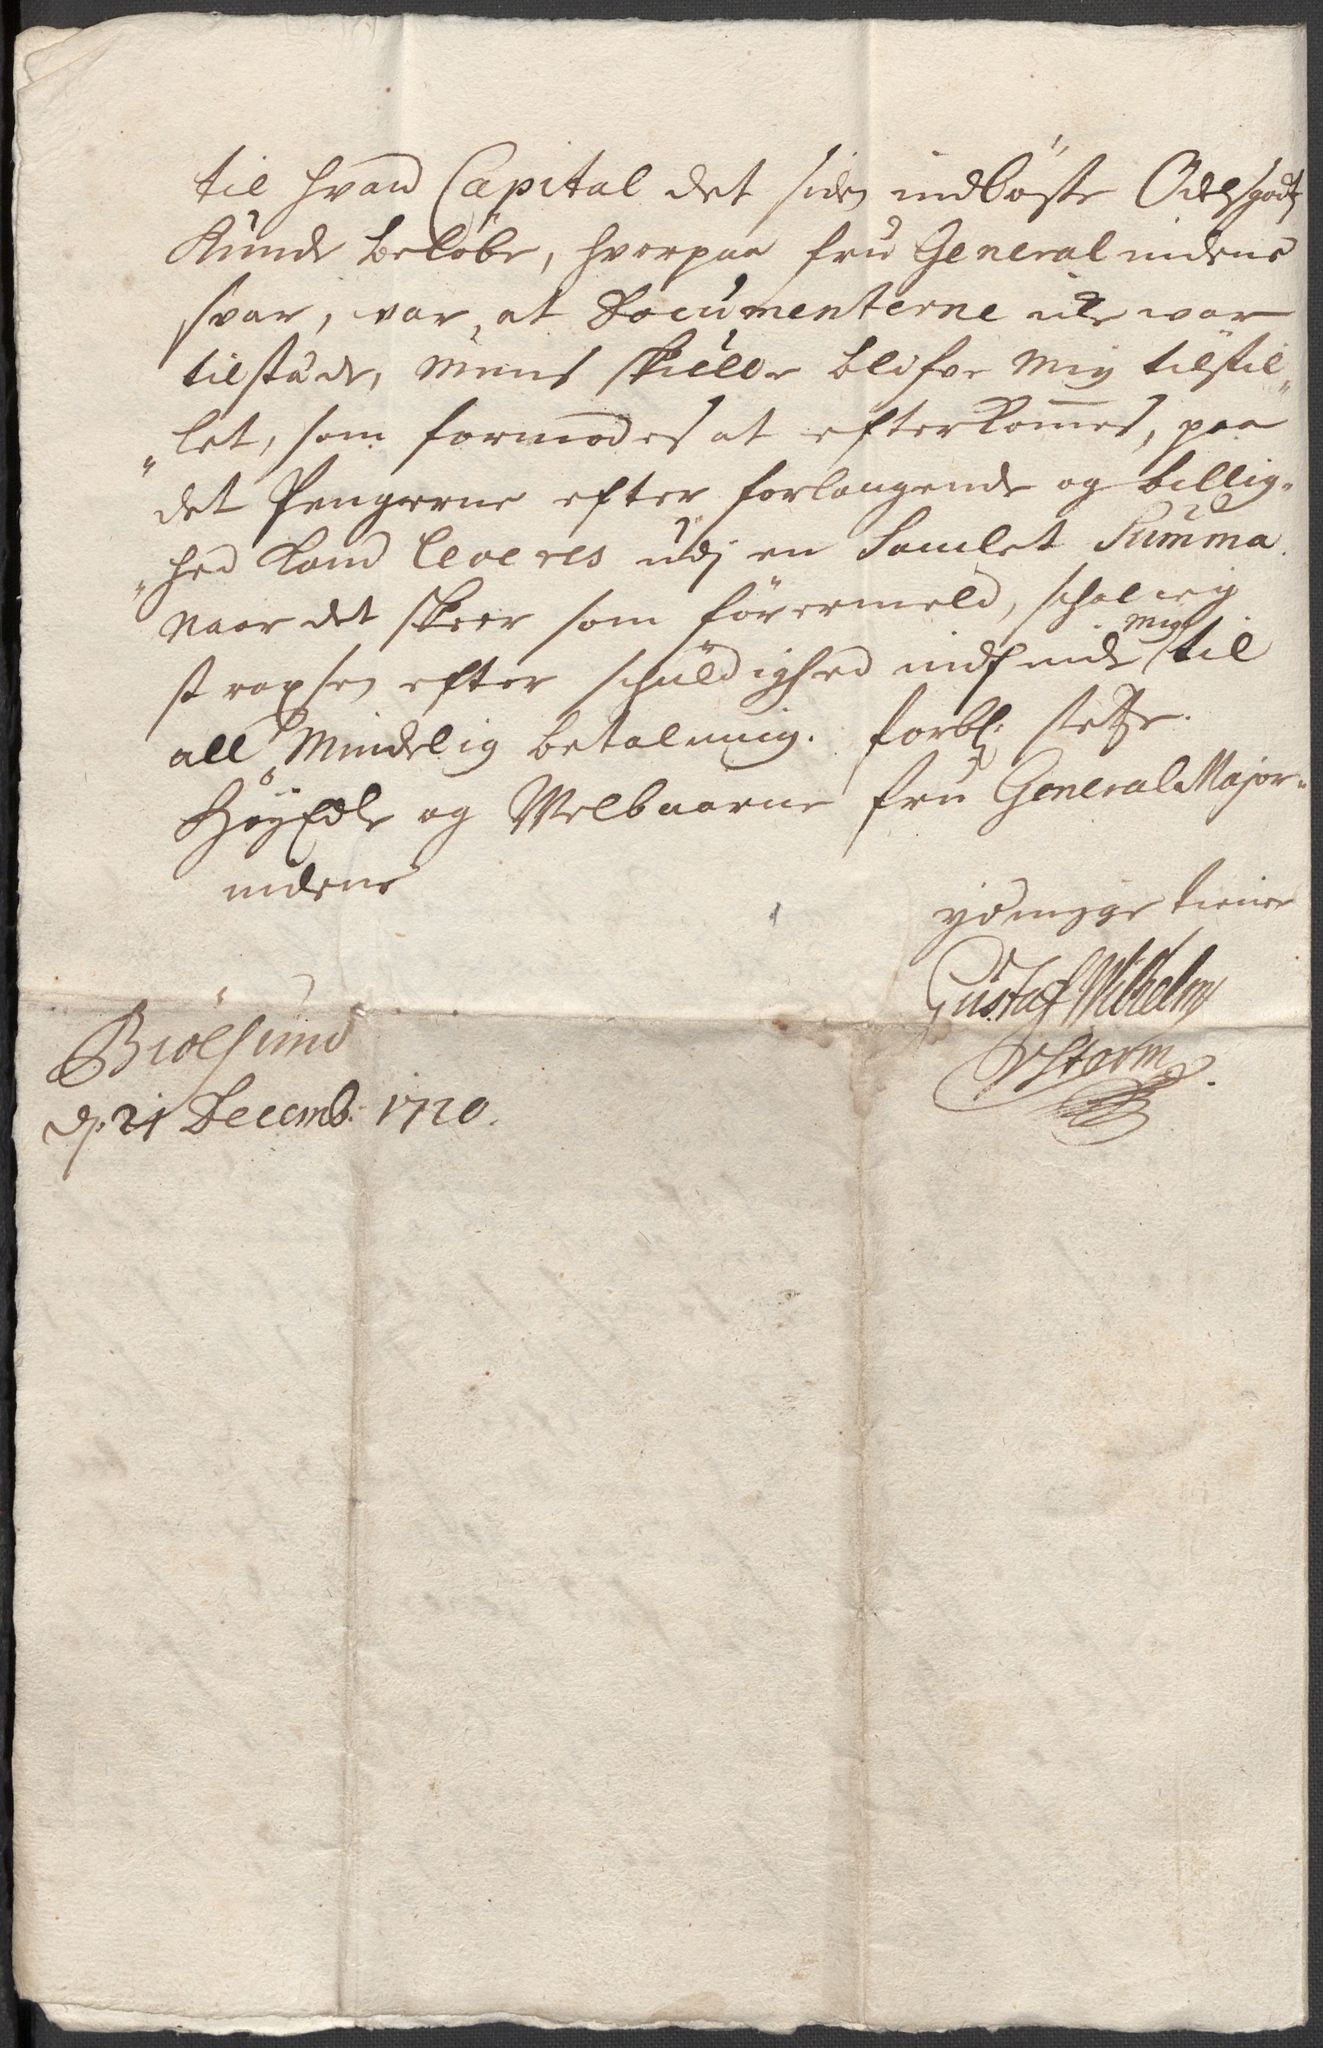 til hvad Capital det siden indløste Odelsgods
Kunde beløbe, hvorpaa fru Generalindens
svar, var, at Documenterne icke war
tilstæde, mens skulle blifve mig tilstil„
„let, som formodes at efterkom̅es, paa
det Pengerne efter forlangende og billig„
„hed kand leveres udj en Samlet Summa.
naar det skeer som førermeld, schal ieg
straxsen efter schuldighed indfinde mig til
all Mindelig betalning. forbl: stetze.
HøyEdle og Welbaarne fru General Major„
indens
ydmyge tiener
Gustaf Wilhelm
Storm
Biølsund
d: 21 Decemb: 1720.